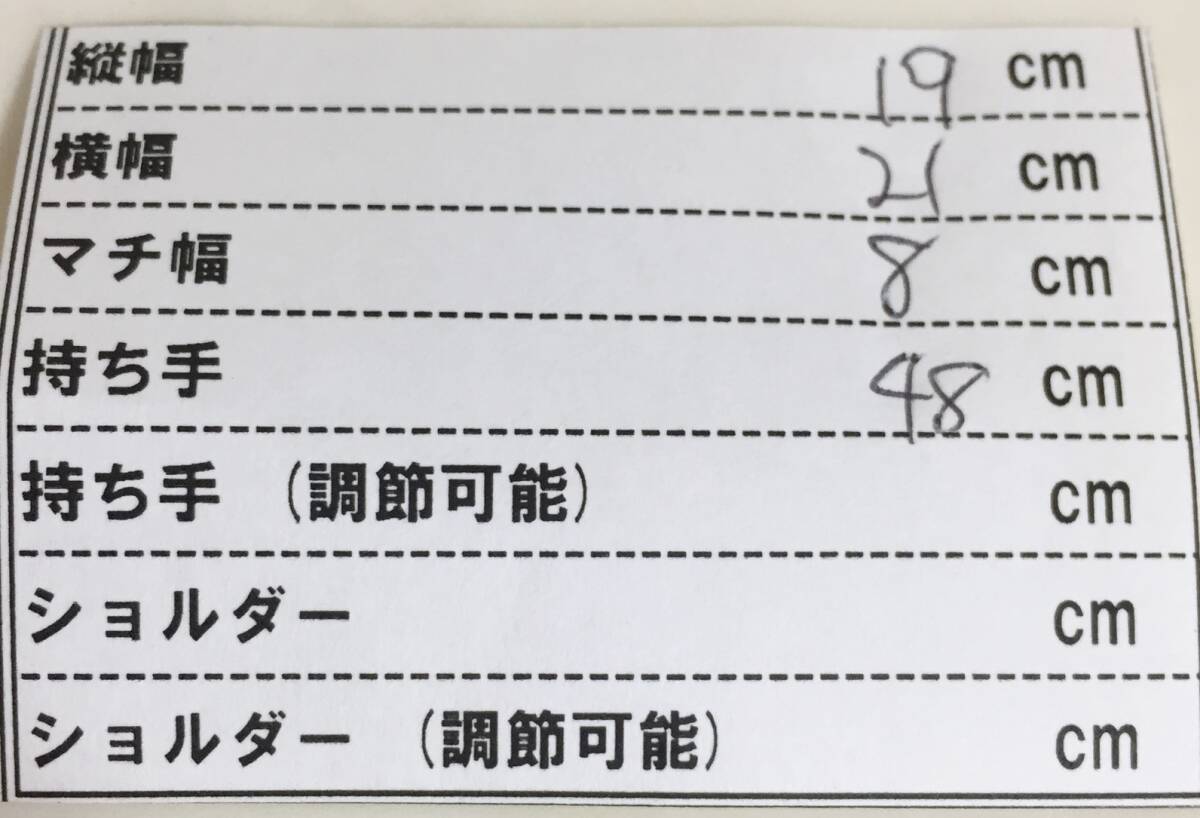 縦幅 19 cm
横幅 21 cm
マチ幅 8 cm
持ち手 48 cm
持ち手 (調節可能) cm
ショルダー cm
ショルダー (調節可能) cm